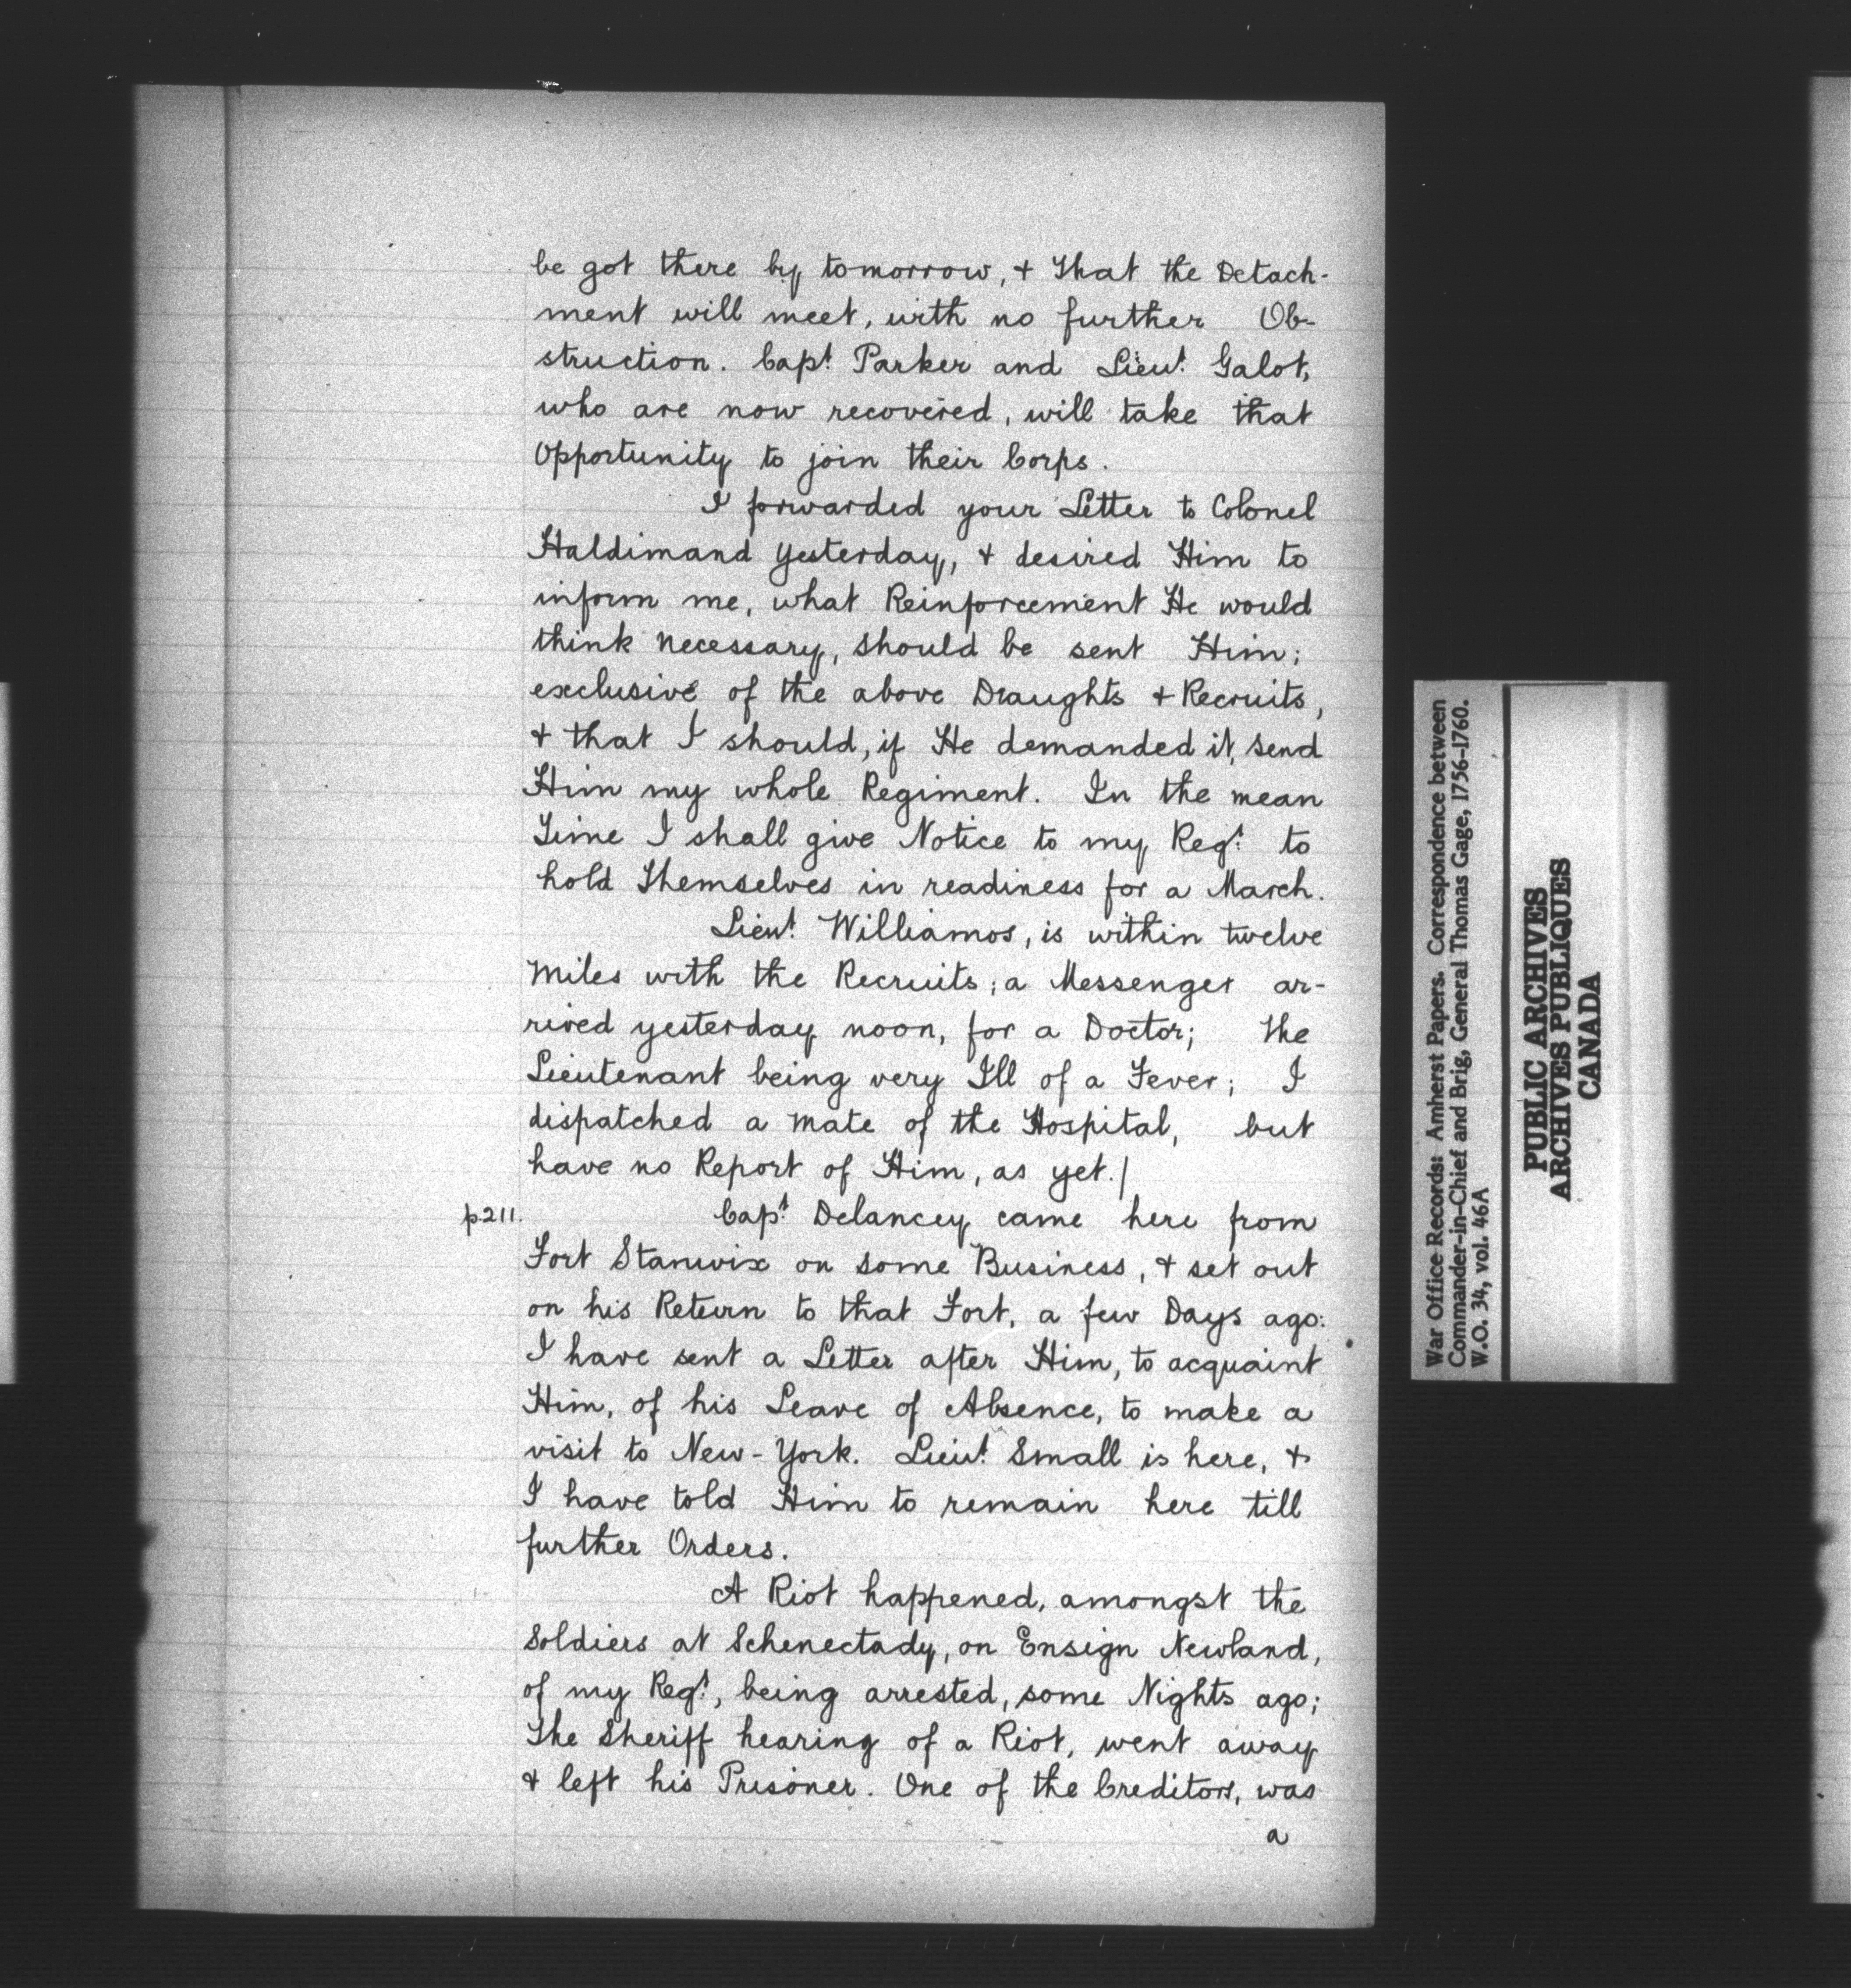 be got there by tomorrow, + that the Detach-
ment will meet, with no further Ob-
struction. Capt. Parker and Lieut. Galot,
who are now recovered, will take that
Opportunity to join their Corps.
I forwarded your Letter to Colonel
Haldimand yesterday, + desired Him to
inform me, what Reinforcement He would
think necessary, should be sent Him;
exclusive of the above Draughts + Recruits,
+ that I should, if He demanded it, send
Him my whole Regiment. In the mean
Time I shall give Notice to my Regt. to
hold themselves in readiness for a March.
Lieut. Williamos, is within twelve
Miles with the Recruits; a Messenger ar-
rived yesterday noon, for a Doctor; the
Lieutenant being very Ill of a Fever; I
dispatched a Mate of the Hospital, but
have no Report of Him, as yet./
p.211. Capt. Delancey came here from
Fort Stanwix on some Business, + set out
on his Return to that Fort, a few Days ago:
I have sent a Letter after Him, to acquaint
Him, of his Leave of Absence, to make a
visit to New-York. Lieut. Small is here, +
I have told Him to remain here till
further Orders.
A Riot happened, amongst the
Soldiers at Schenectady, on Ensign Newland,
of my Regt., being arrested, some Nights ago;
The Sheriff hearing of a Riot, went away
+ left his Prisoner. One of the Creditors, was
a
War Office Records: Amherst Papers. Correspondence between
Commander-in-Chief and Brig, General Thomas Gage, 1756-1760.
W.O. 34, vol. 46A
PUBLIC ARCHIVES
ARCHIVES PUBLIQUES
CANADA